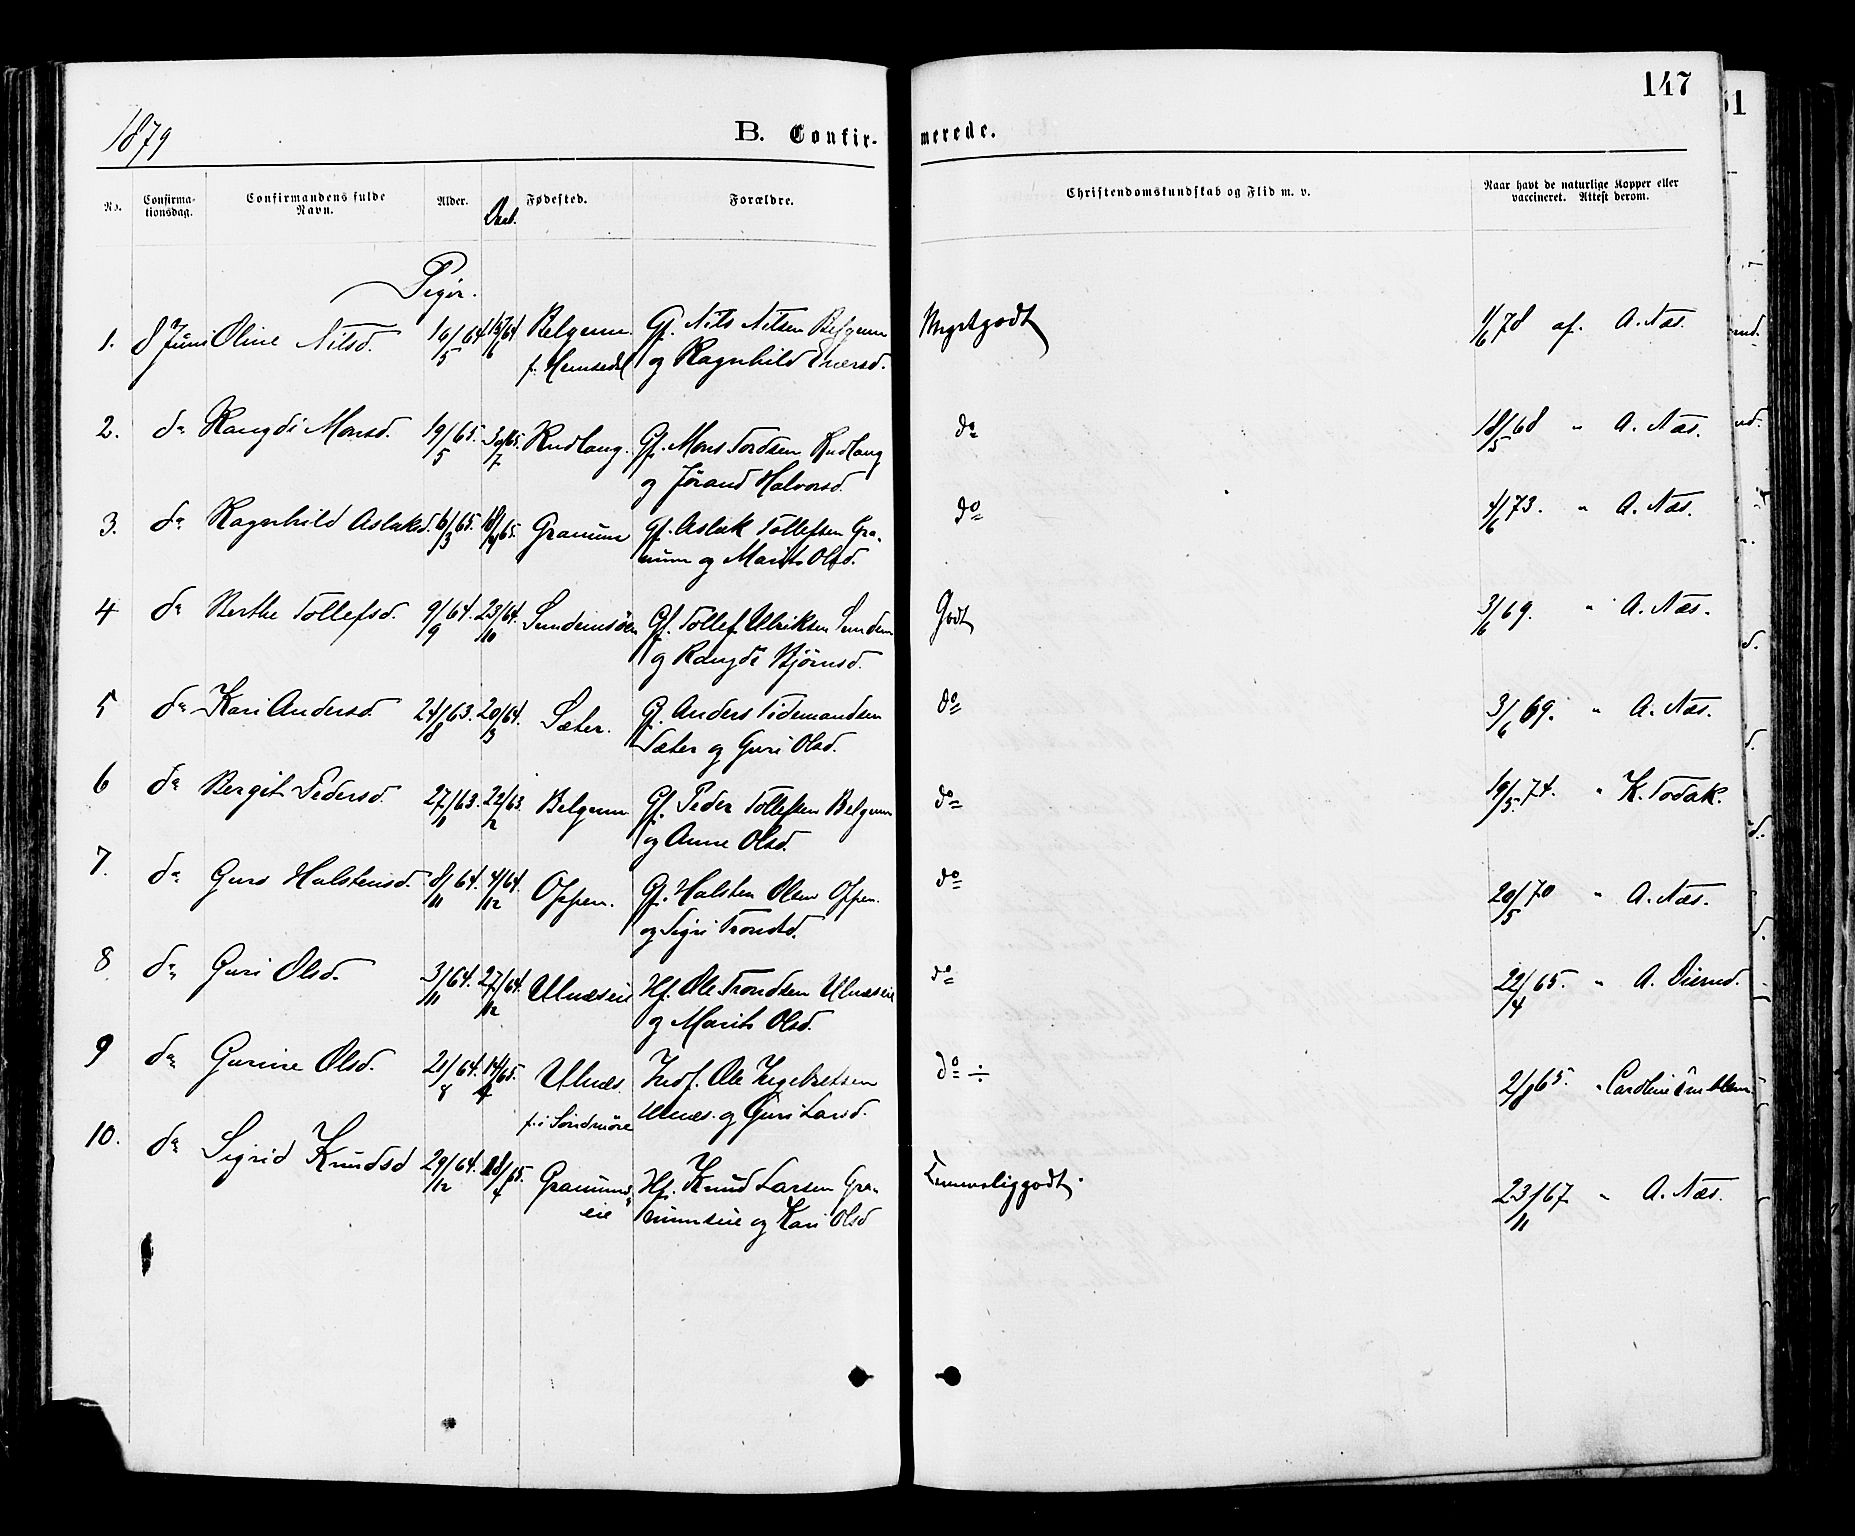 147
1879
B. Confir-
merede.
No.
Confirma-
tionsdag.
Confirmandens fulde
Navn.
Alder.
Fødested.
Forældre.
Christendomskundskab og Flid m. v.
Naar havt de naturlige Kopper eller
vaccineret. Attest derom.
Piger.
1. 8 Juni Oline Nilsd. 16/5 64 Belgum Gf. Nils Nilsen Belgum Meget godt 1/6 78 af. A. Næs.
f. Hemsedal og Ragnhild Eversd.
2. do Rangdi Monsd. 19/5 65. 30/7 65. Rudlang. Gf. Mons Tordsen Rudlang do 18/5 68 " A. Næs.
og Jørand Halvorsd.
3. do Ragnhild Aslaksd. 6/3 65. Granum Gf. Aslak Tollefsen Gra- do 4/6 73. " A. Næs.
num og Marit Olsd.
4 do Berthe Tollefsd. 9/9 64. 23/10 64. Gf. Tollef Ulriksen Godt 3/6 69. " A. Næs.
og Rangdi Bjørnsd.
5 do Kari Andersd. 24/8 63. 20/3 64. Sæter. Gf. Anders Tidemandsen do 3/6 69. " A. Næs.
Sæter og Guri Olsd.
6 do Bergit Pedersd. 22/2 63. Belgum Gf. Peder Tollefsen Belgum do 19/5 74. " K. Todak.
og Anne Olsd.
7. do Guri Halstensd. 8/11 64. 4/12 64. Oppen. Gf. Halsten Olsen Oppen. do 20/5 70 " A. Næs.
og Sigri Trondsd.
8 do Guri Olsd. 3/11 64. 27/12 64. Ulnæseie Hf. Ole Trondsen Ulnæseie do 22/4 65. " A.
og Marit Olsd.
9 do Gurine Olsd. 21/8 64. Ulnæs. Indf. Ole Ingebretsen do ÷ 2/8 65. " Caroline Emblem
f. i Søndmøre Ulnæs. og Guri Larsd.
10. do Sigrid Knudsd 29/12 64. Granums- Hf. Knud Larsen Gra- Temmelig godt. 23/11 67 " A. Næs.
eie numseie og Kari Olsd